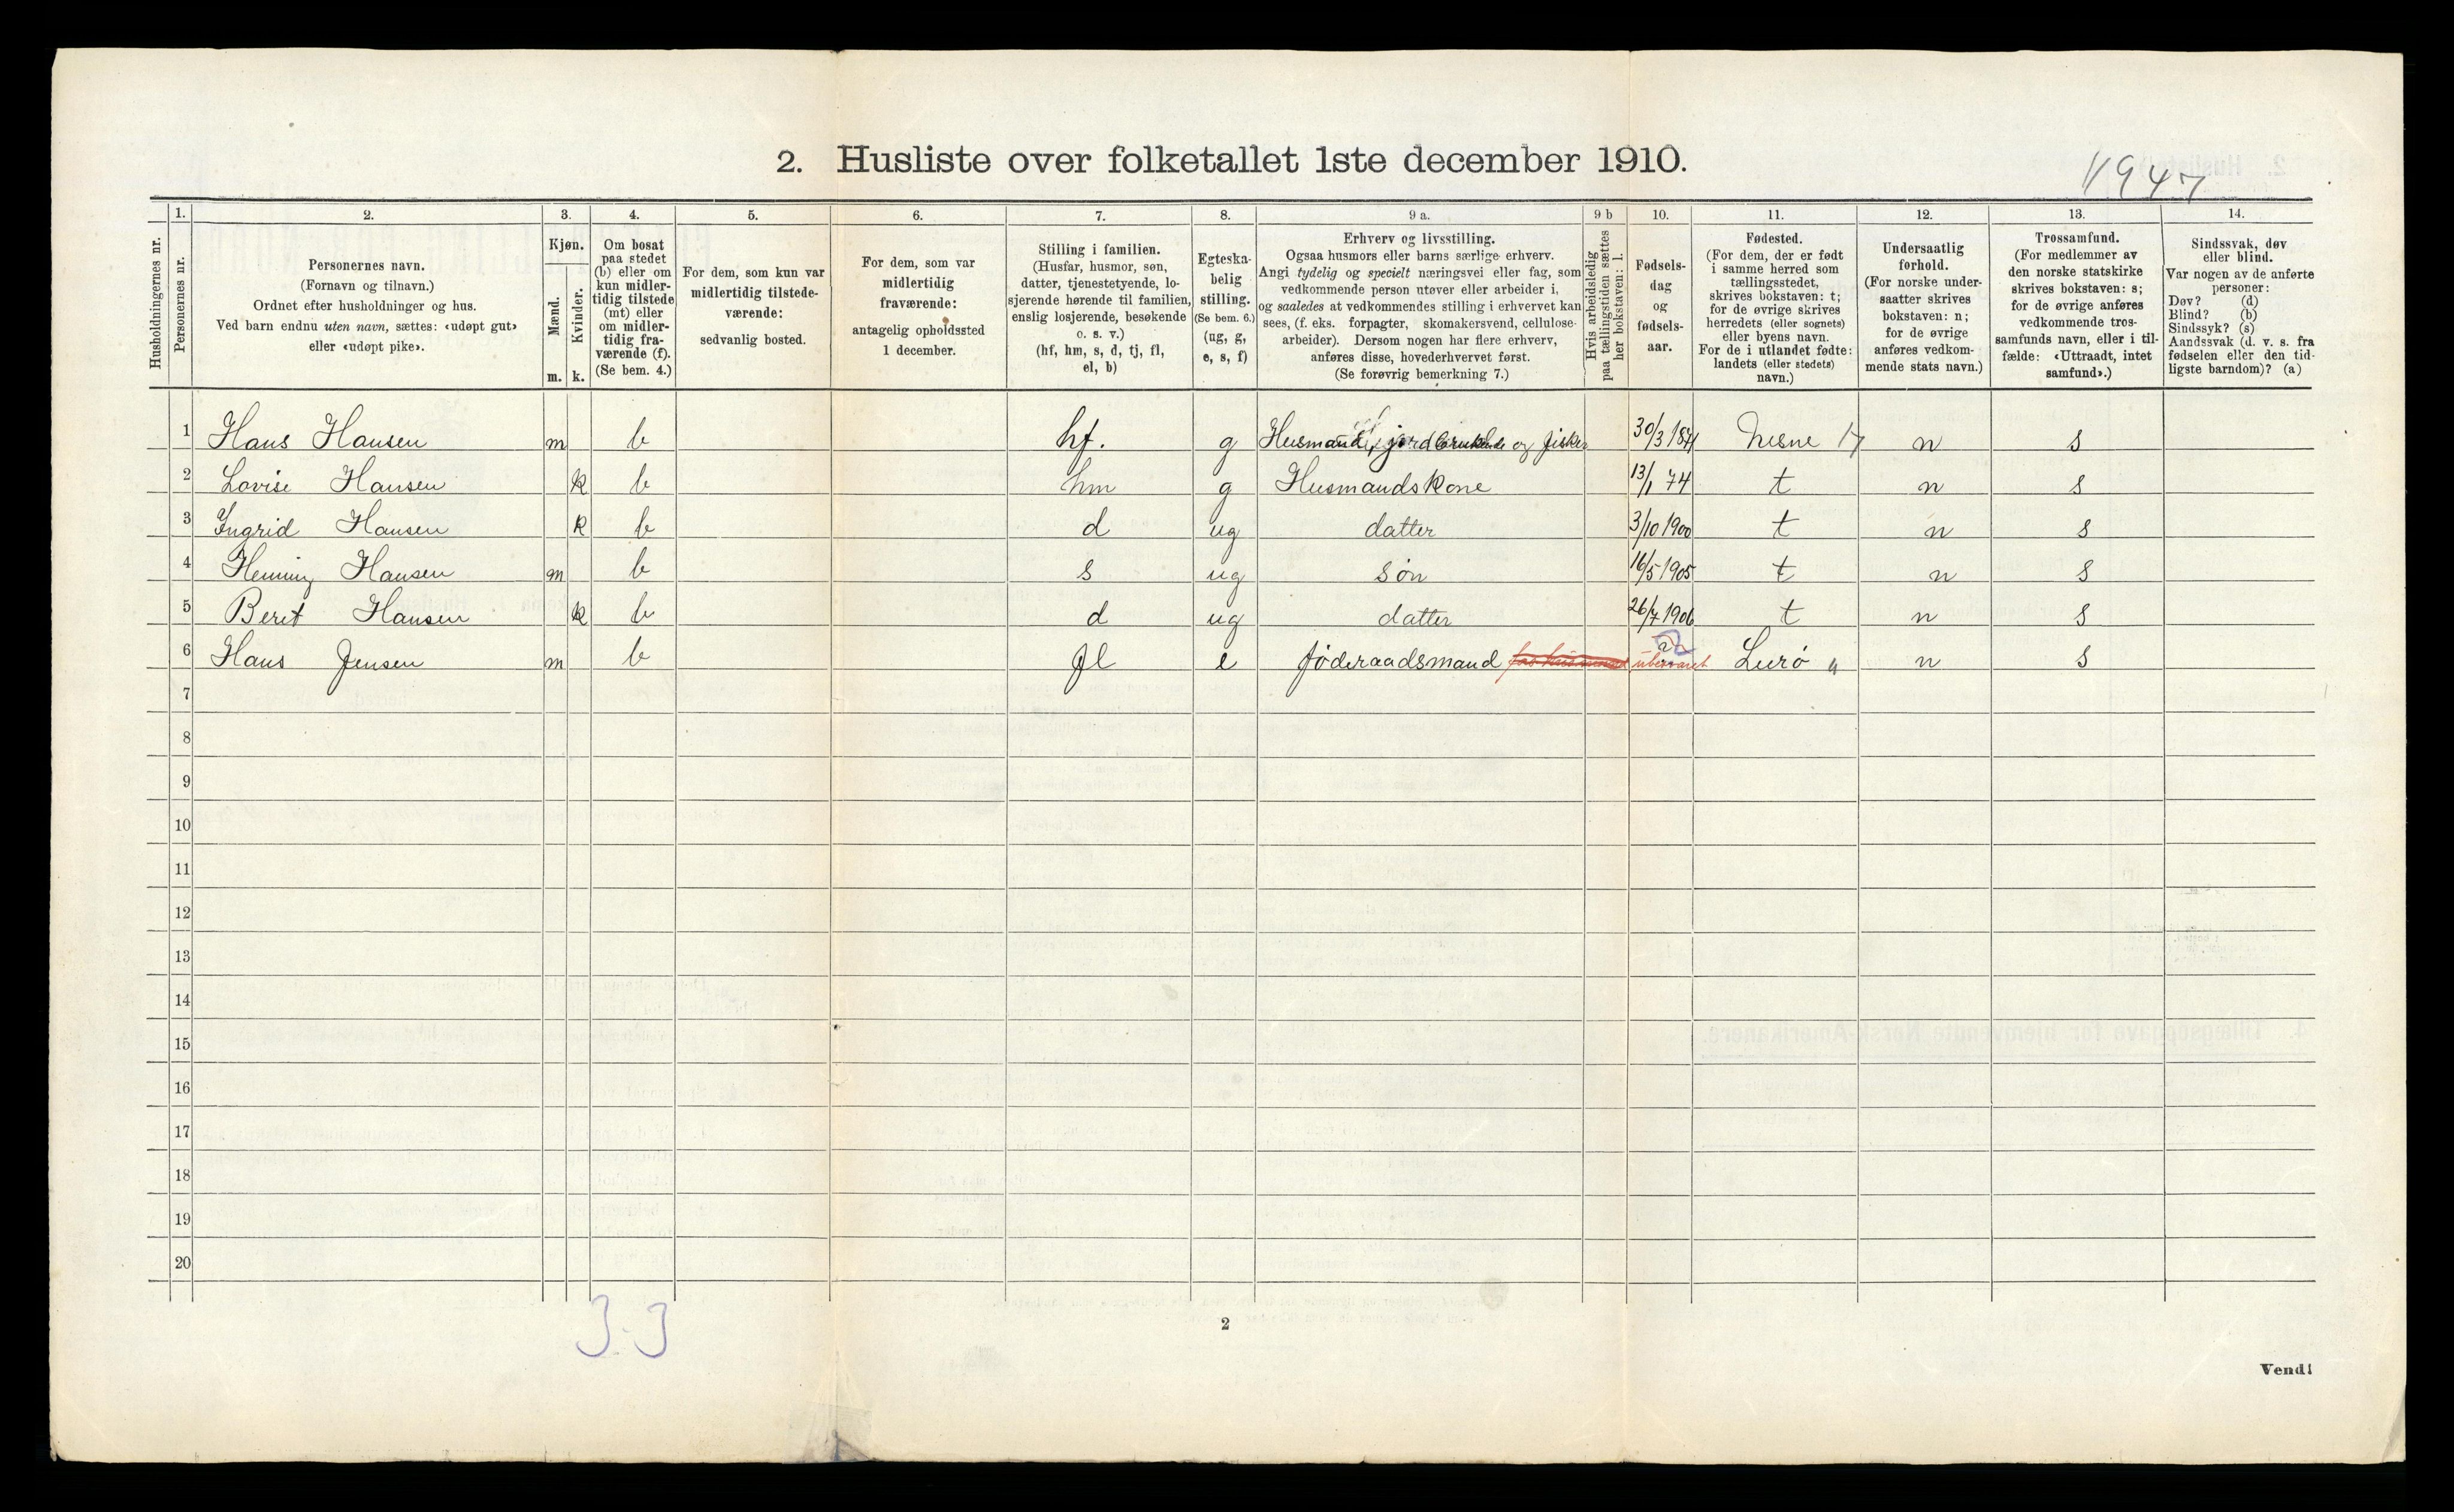 2. Husliste over folketallet 1ste december 1910.
1947
1. 2. 3. 4. 5. 6. 7. 8. 9 a. 9 b 10. 11. 12. 13. 14.
Husholdningernes nr.
Personernes nr.
Personernes navn.
(Fornavn og tilnavn.)
Ordnet efter husholdninger og hus.
Ved barn endnu uten navn, sættes: «udøpt gut»
eller «udøpt pike».
Kjøn.
Mænd.
Kvinder.
m. k.
Om bosat
paa stedet
(b) eller om
kun midler-
tidig tilstede
(mt) eller
om midler-
tidig fra-
værende (f).
(Se bem. 4.)
For dem, som kun var
midlertidig tilstede-
værende:
sedvanlig bosted.
For dem, som var
midlertidig
fraværende:
antagelig opholdssted
1 december.
Stilling i familien.
(Husfar, husmor, søn,
datter, tjenestetyende, lo-
sjerende hørende til familien,
enslig losjerende, besøkende
o. s. v.)
(hf, hm, s, d, tj, fl,
el, b)
Egteska-
belig
stilling.
(Se bem. 6.)
(ug, g,
e, s, f)
Erhverv og livsstilling.
Ogsaa husmors eller barns særlige erhverv.
Angi tydelig og specielt næringsvei eller fag, som
vedkommende person utøver eller arbeider i,
og saaledes at vedkommendes stilling i erhvervet kan
sees, (f. eks. forpagter, skomakersvend, cellulose-
arbeider). Dersom nogen har flere erhverv,
anføres disse, hovederhvervet først.
(Se forøvrig bemerkning 7.)
Hvis arbeidsledig
paa tællingstiden sættes
her bokstaven: l.
Fødsels-
dag
og
fødsels-
aar.
Fødested.
(For dem, der er født
i samme herred som
tællingsstedet,
skrives bokstaven: t;
for de øvrige skrives
herredets (eller sognets)
eller byens navn.
For de i utlandet fødte:
landets (eller stedets)
navn.)
Undersaatlig
forhold.
(For norske under-
saatter skrives
bokstaven: n;
for de øvrige
anføres vedkom-
mende stats navn.)
Trossamfund.
(For medlemmer av
den norske statskirke
skrives bokstaven: s;
for de øvrige anføres
vedkommende tros-
samfunds navn, eller i til-
fælde: «Uttraadt, intet
samfund».)
Sindssvak, døv
eller blind.
Var nogen av de anførte
personer:
Døv? (d)
Blind? (b)
Sindssyk? (s)
Aandssvak (d. v. s. fra
fødselen eller den tid-
ligste barndom)? (a)
1 Hans Hansen m b hf. g Husmand, jordbrukende og fisker 30/3 Nesne n s
2 Lovise Hansen k b hm g Husmandskone 13/1 74 t n s
3 Ingrid Hansen k b d ug datter 3/10 1900 t n s
4 Heming Hansen m b s ug søn 16/5 1905 t n s
5 Beret Hansen k b d ug datter 26/7 1906 t n s
6 Hans Jensen m b fl e føderaadsmand Lurø " n s
7
8
9
10
11
12
13
14
15
16
17
18
19
20
3-3
2
Vend!